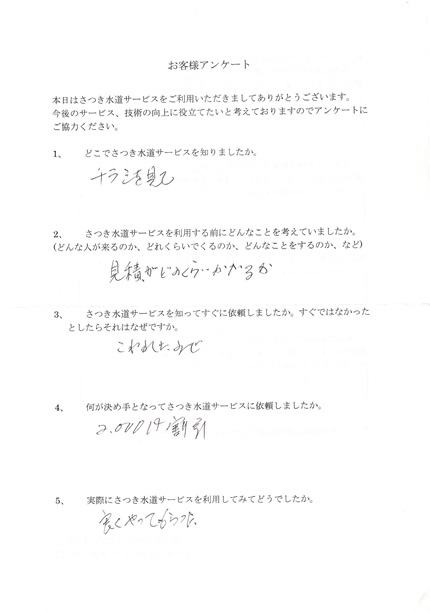 お客様アンケート
本日はさつき水道サービスをご利用いただきましてありがとうございます。
今後のサービス、技術の向上に役立てたいと考えておりますのでアンケートに
ご協力ください。
1、 どこでさつき水道サービスを知りましたか。
チラシを見て
2、 さつき水道サービスを利用する前にどんなことを考えていましたか。
(どんな人が来るのか、どれくらいでくるのか、どんなことをするのか、など)
見積がどのくらいかかるか
3、 さつき水道サービスを知ってすぐに依頼しましたか。すぐではなかった
としたらそれはなぜですか。
こわれたので
4、 何が決め手となってさつき水道サービスに依頼しましたか。
2.000円割引
5、 実際にさつき水道サービスを利用してみてどうでしたか。
良くやってもらった